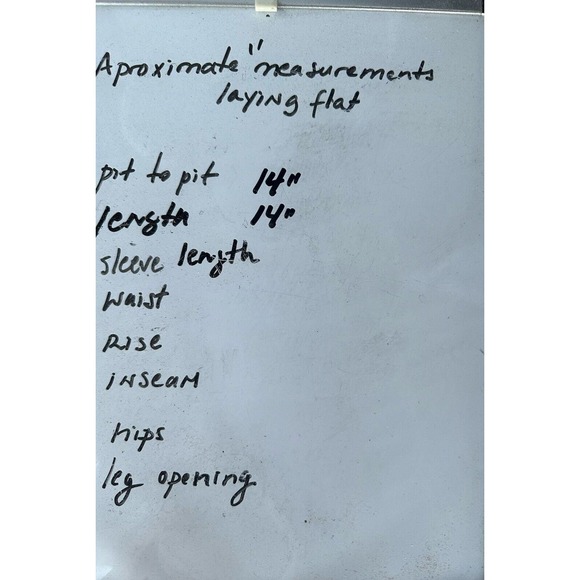 Aproximate " measurements
laying flat
pit to pit 14"
length 14"
sleeve length
waist
Rise
inseam
hips
leg opening